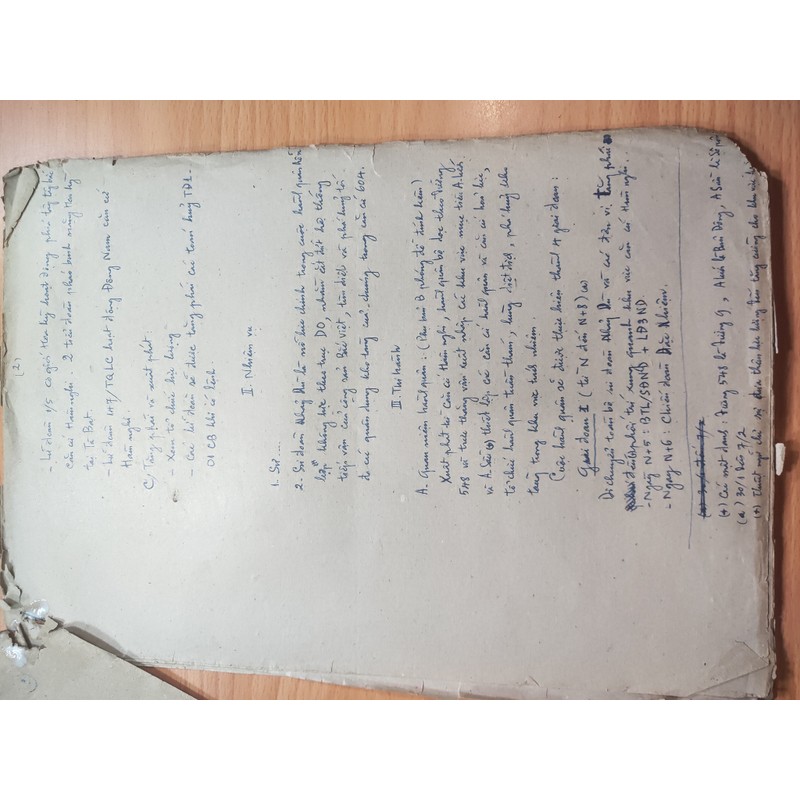 (2)
- Lữ đoàn 1/5 cơ giới Hoa kỳ hoạt động phía tây tây bắc
căn cứ Hàm nghi. 2 tiểu đoàn pháo binh nặng Hoa kỳ
tại Tà Bạt.
- Lữ đoàn 147/TQLC hoạt động Đông Nam căn cứ
Hàm nghi.
C) Tăng phái và xuất phát:
- Xem tổ chức lực lượng
- Các lữ đoàn sẽ được tăng phái các toán huỷ TĐ1-
01 CB khi có lệnh.
II. Nhiệm vụ
1. Sư....
2. Sư đoàn Nhảy Dù là nỗ lực chính trong cuộc hành quân hỗn
hợp không lực theo trục DO, nhằm cắt đứt hệ thống
tiếp vận của cộng sản Bắc việt, tìm diệt và phá huỷ tối
đa các quân dụng kho tàng của chúng trong căn cứ 604.
III. Thi hành
A. Quan niệm hành quân: (Phụ bản B phóng đồ đính kèm)
Xuất phát từ căn cứ Hàm nghi, hành quân bộ dọc theo đường
548 và trực thăng vận xuất nhập các khu vực mục tiêu A.
và A. (+) thiết lập các căn cứ hành quân và căn cứ hoả lực,
tổ chức hành quân tuần thám, lùng diệt địch, phá huỷ kho
tàng trong khu vực trách nhiệm.
Cuộc hành quân sẽ được thực hiện thành 4 giai đoạn:
Giai đoạn I (từ N đến N+8) (a)
Di chuyển toàn bộ sư đoàn Nhảy Dù và các đơn vị tăng phái
đến phối trí xung quanh khu vực căn cứ Hàm nghi.
- Ngày N+5: BTL/SĐND + LĐ3ND
- Ngày N+6: Chiến đoàn Đặc Nhiệm.
(+) Các mật danh: Đường 548 là đường 9, A là Bản Đông, A là
(a) 30/1 đến 7/2
(+) Thuật ngữ chỉ sự đưa thêm lực lượng đến tăng cường cho khu vực